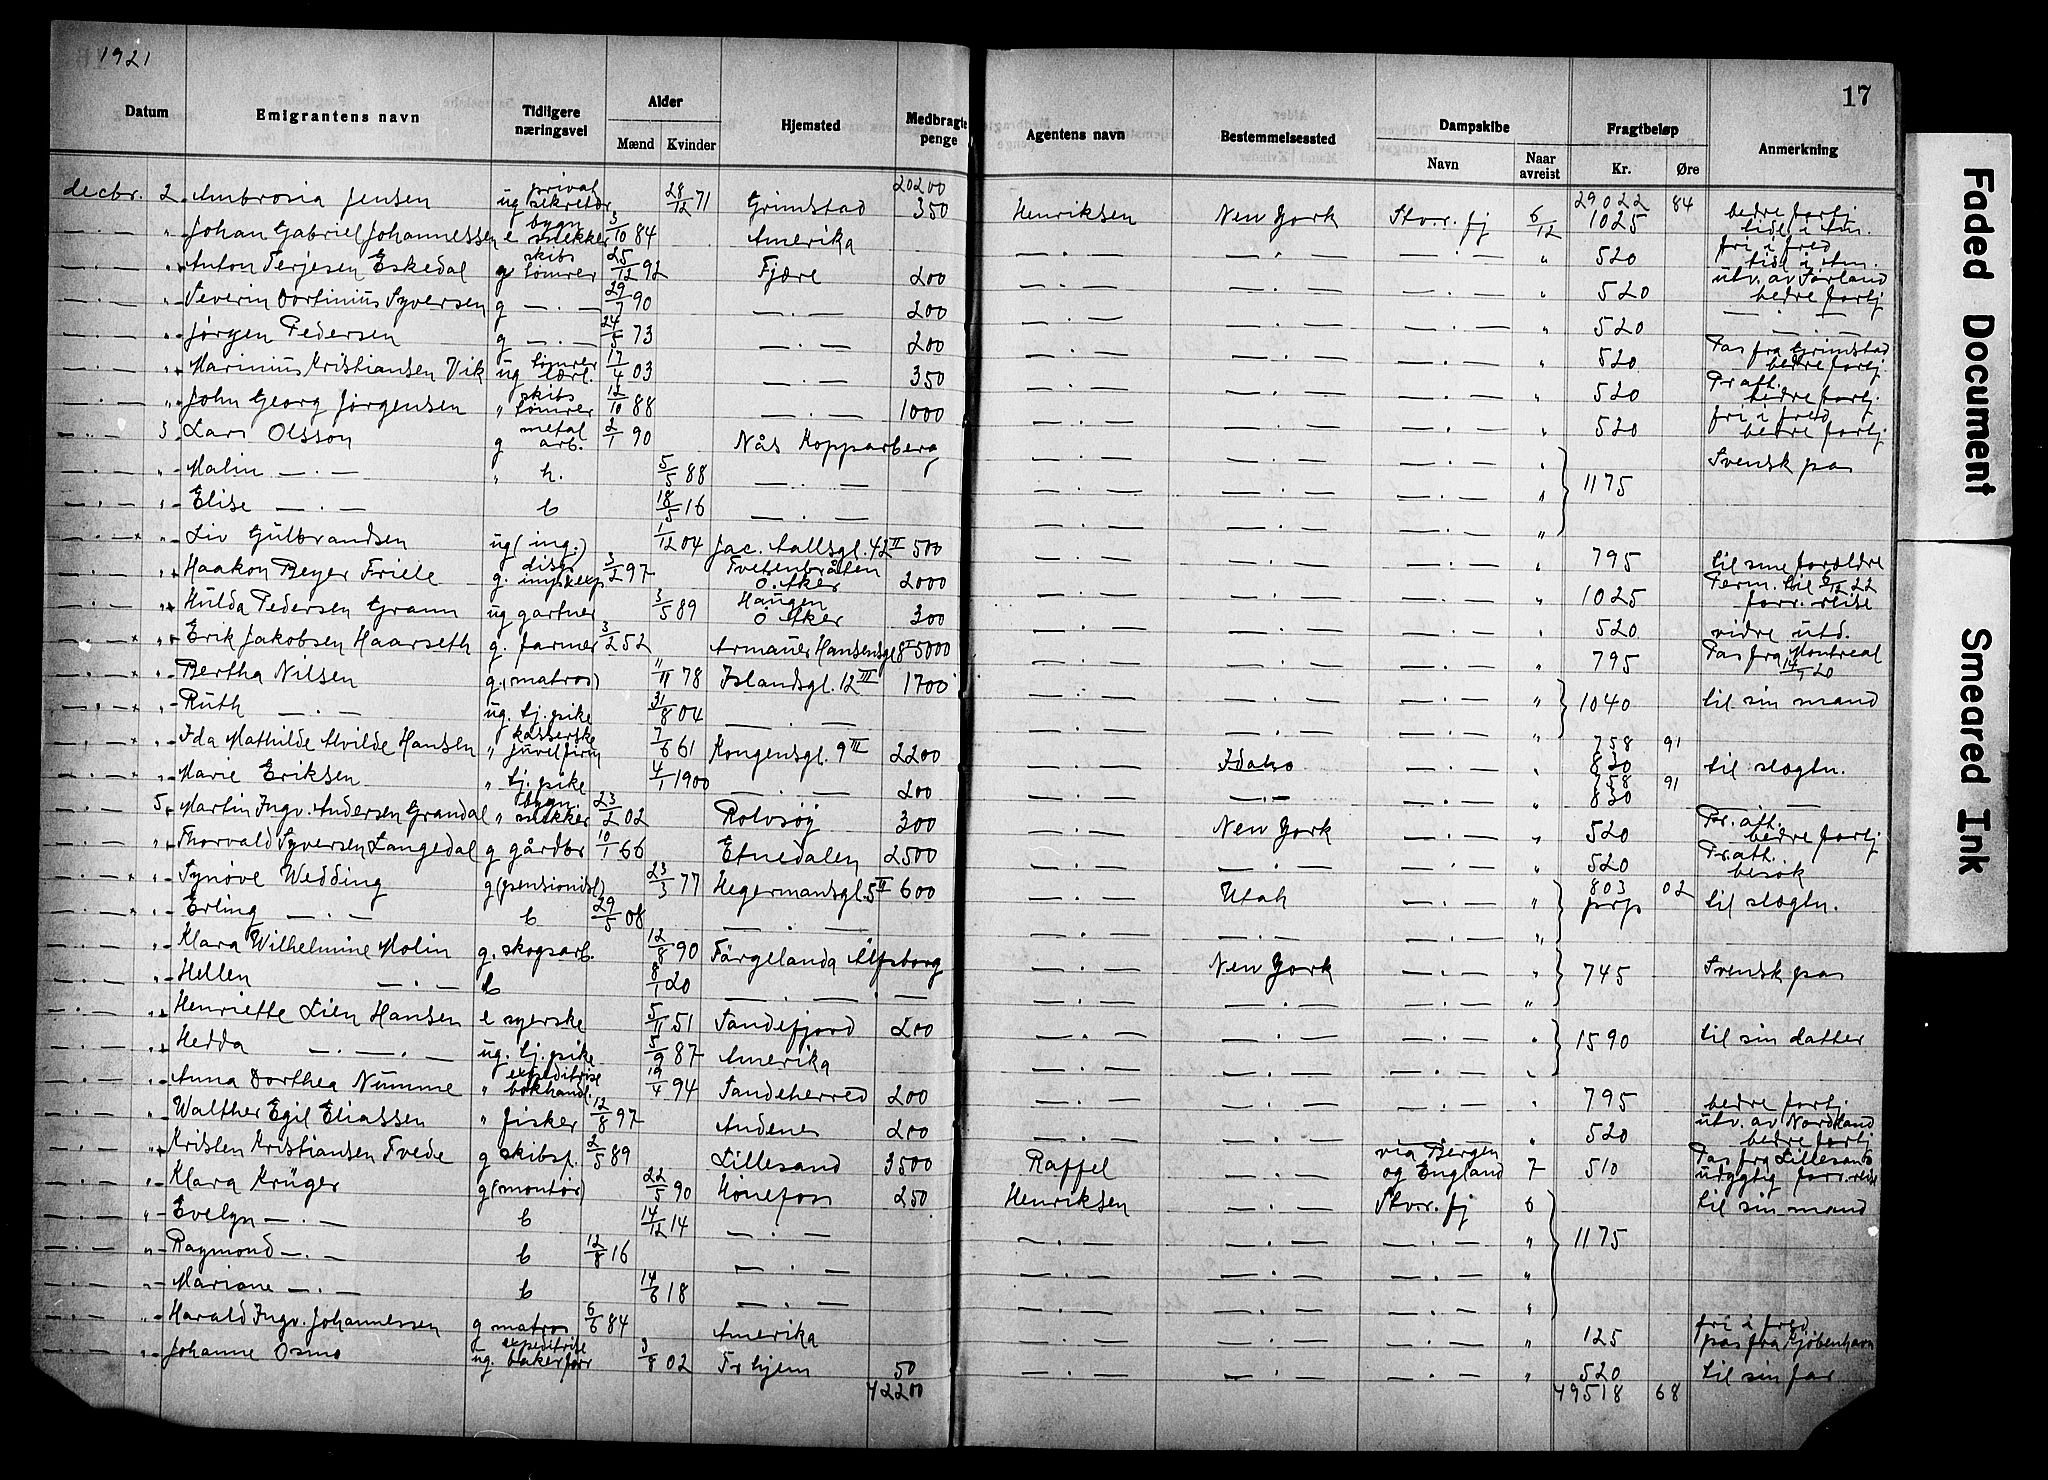 1921
17
Datum Emigrantens navn Tidligere næringsvei Alder Mænd Kvinder Hjemsted Medbragte penge Agentens navn Bestemmelsessted Dampskibe Navn Naar avreist Fragtbeløp Kr. Øre Anmerkning
20200 29022 84
decbr. 2 Ambrosia Jensen ug privat sekretær 28/12 71 Grimstad 350 Henriksen New York Stvr. fj 6/12 1025 bedre fortj
— . — " Johan Gabriel Johannessen e bygn snekker 3/10 84 Amerika — . — — . — — . — " 520 tidl i Am. fri i fred
— . — " Anton Terjesen Eskedal g skibs tømrer 25/12 92 Fjære 200 — . — — . — — . — " 520 tidl i Am. utv. av Sørland
— . — " Severin Dortinius Syversen g — . — 29/7 90 — . — 200 — . — — . — — . — " 520 bedre fortj
— . — " Jørgen Pedersen g — . — 24/5 73 — . — 200 — . — — . — — . — " 520 Pas fra Grimstad
— . — " Marinius Kristiansen Vik ug tømrer lærl. 17/4 03 — . — 350 — . — — . — — . — " 520 bedre fortj. Pr. att.
— . — " John Georg Jørgensen " skibs tømrer 12/10 88 — . — 1000 — . — — . — — . — " 520 bedre fortj. fri i fred bedre fortj
— . — 3 Lars Olsson g metal arb. 2/1 90 Nås Kopparberg — . — — . — — . — " Svensk pas
— . — " Malin — . — " h. 5/5 88 — . — — . — — . — — . — " 1175
— . — " Elise — . — b 18/5 16 — . — — . — — . — — . — "
— . — × " Liv Gulbrandsen ug (ing.) 1/12 04 Jac. Aallsgt. 42 II 500 — . — — . — — . — " 795 til sine forældre
— . — " Haakon Beyer Friele g. 3/2 97 Tvetenbråten Ø. Aker 2000 — . — — . — — . — " 1025 Perm. til 6/12 22 forr. reise
— . — " Hulda Pedersen Grann ug gartner 3/5 89 Haugen Ø Aker 300 — . — — . — — . — " 520 vidre utd.
— . — × " Erik Jakobsen Haarseth g. farmer 3/2 52 Armauer Hansensgt 8 II 5000 — . — — . — — . — " 795 Pas fra Montreal 14/7 20
— . — × " Bertha Nilsen g. (matros) "/11 78 Islandsgt. 12 III 1700 — . — — . — — . — " 1040 til sin mand
— . — × " Ruth — . — ug. tj. pike 31/8 04 — . — — . — — . — — . — "
— . — × " Ida Mathilde Alvilde Hansen " kasserske juvelfirm 7/6 61 Kongensgt. 9 III 2200 — . — Idaho — . — " 758 91 830 til slegtn.
— . — × " Marie Eriksen " tj. pike 4/1 1900 — . — 200 — . — — . — — . — " 758 91 830 —
— . — 5 Martin Ingv. Andersen Grandal " bygn. snekker 23/2 02 Rolvsøy 300 — . — New York — . — " 520 Pr. att. bedre fortj
— . — " Thorvald Syversen Langedal g gårdbr 10/1 66 Etnedalen 2500 — . — — . — — . — " 520 Pr. att. besøk
— . — × " Synøve Wedding g (pensionist) 23/3 77 Hegermansgt. 5 II 600 — . — Utah — . — " 803 02 til slegtn.
— . — × " Erling — . — b 29/5 08 — . — — . — — . — — . — "
— . — " Klara Wilhelmine Molin g. skogsarb. 12/8 90 Färgelanda Älfsborg — . — New York — . — " 745 Svensk pas
— . — " Hellen — . — b 8/1 20 — . — — . — — . — — . — "
— . — " Henriette Lien Hansen e syerske 5/11 51 Sandefjord 200 — . — — . — — . — " 1590 til sin datter
— . — " Hedda — . — . — ug. tj. pike 5/9 87 Amerika — . — — . — — . — "
— . — " Anna Dorthea Numme " expeditrise bokhandl. 19/4 94 Sandeherred 200 — . — — . — — . — " 795 bedre fortj.
— . — " Walther Egil Eliassen " fisker 12/8 97 Andenes 200 — . — — . — — . — " 520 utv. av Nordland bedre fortj
— . — " Kristen Kristiansen Tvede g skibsf. 2/5 89 Lillesand 3500 Raffel — . — via Bergen og England 7 510 Pas fra Lillesand udygtig forr. reise
— . — " Klara Krüger g (montør) 22/5 90 Hønefoss 250 Henriksen — . — Stvr. fj 6 til sin mand
— . — " Evelyn — . — b 14/12 14 — . — — . — — . — — . — " 1175
— . — " Raymond — . — b 12/8 16 — . — — . — — . — — . — "
— . — " Mariane — . — b 14/6 18 — . — — . — — . — — . — "
— . — " Harald Ingv. Johannessen g matros 6/6 84 Amerika — . — — . — — . — " 125 fri i fred pas fra Kjøbenhavn
— . — " Johanne Osmo ug. expeditrise bakerforr 3/8 02 Trhjem 50 — . — — . — — . — " 520 til sin far
42200 49518 68
Faded Document
Smeared Ink